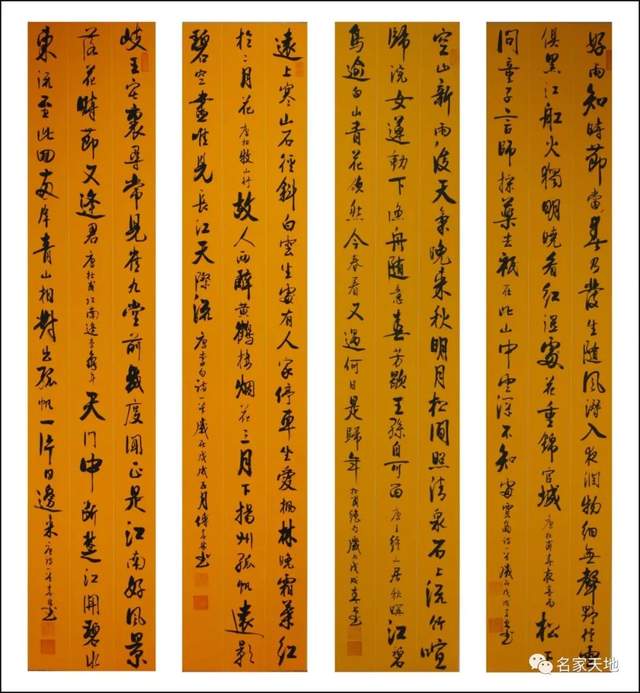 好雨知時節當春乃發生隨風潛入夜潤物細無聲野徑雲
俱黑江船火獨明曉看紅濕處花重錦官城唐杜甫春夜喜雨松下
問童子言師採藥去祗在此山中雲深不知處賈島詩一首歲在戊戌書
空山新雨後天氣晚來秋明月松間照清泉石上流竹喧
歸浣女蓮動下漁舟隨意春芳歇王孫自可留唐王維山居秋暝江碧
鳥逾白山青花欲然今春看又過何日是歸年杜甫絕句歲在戊戌書
遠上寒山石徑斜白雲生處有人家停車坐愛楓林晚霜葉紅
於二月花唐杜牧山行故人西辭黃鶴樓煙花三月下揚州孤帆遠影
碧空盡唯見長江天際流唐李白詩一首歲在戊戌五月書
岐王宅裏尋常見崔九堂前幾度聞正是江南好風景
落花時節又逢君唐杜甫江南逢李龜年天門中斷楚江開碧水
東流至此回兩岸青山相對出孤帆一片日邊來唐詩一首書
名家天地